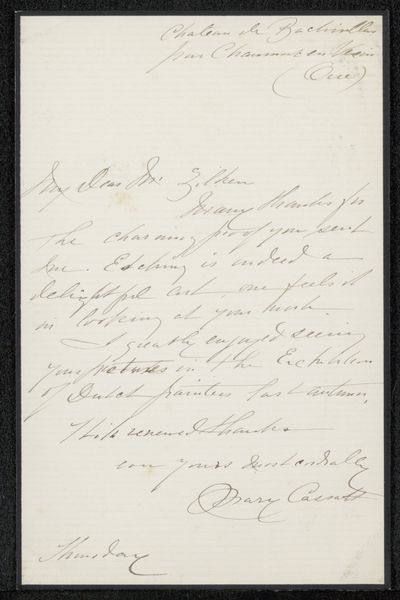 Chateau de Bachivillers
par Chaumont en Vexin
(Oise)
My Dear Mr. Zilken
Many thanks for
the charming proof you sent
me. Etching is indeed a
delightful art, one feels it
in looking at your work.
I greatly enjoyed seeing
your pictures in the Exhibition
of Dutch painters last autumn.
With renewed thanks
yours most cordially
Mary Cassatt
Thursday